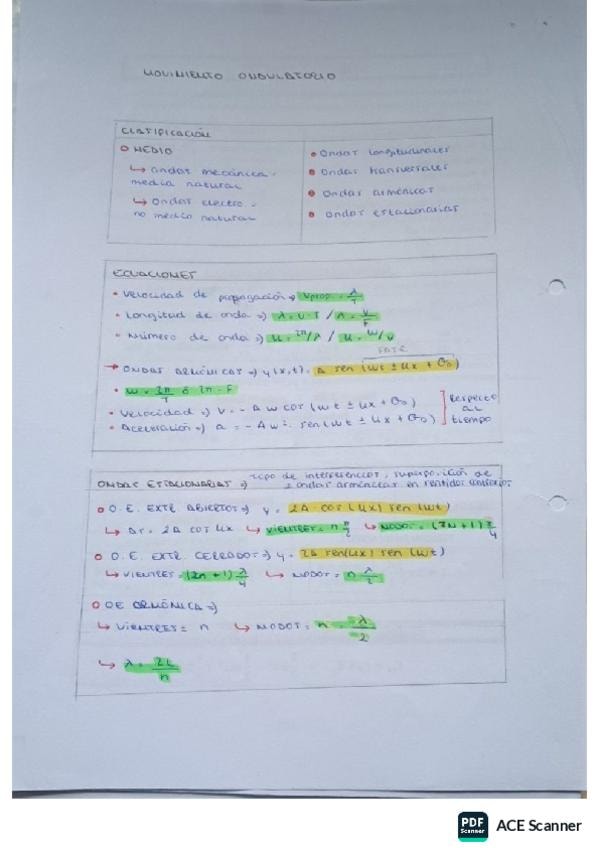 MOVIMIENTO ONDULATORIO
CLASIFICACIÓN
MEDIO
↳ ondas mecánica.
media natural
↳ Ondas electro.
no medio natural
• Ondas longitudinales
• Ondas transversales
• Ondas armónicas
• Ondas estacionarias
ECUACIONES
• Velocidad de propagación ⇒ Vprop. = λ/T
• Longitud de onda ⇒ λ = v·T / λ = v/F
• Número de onda ⇒ K = 2π/λ / K = ω/v
FASE
→ ONDAS ARMÓNICAS ⇒ y(x,t) = A sen (ωt ± kx + φ₀)
• ω = 2π/T ó 2π·F
• Velocidad ⇒ V = - A ω cos (ωt ± kx + φ₀)
• Aceleración ⇒ a = - A ω². sen (ωt ± kx + φ₀)
Respecto
al
tiempo
ONDAS ESTACIONARIAS ⇒ tipo de interferencias, superposición de
2 ondas armónicas en sentidos contrarios
O.E. EXTR. ABIERTOS ⇒ y = 2A · cos (kx) sen (ωt)
↳ Ar = 2A cos kx ↳ VIENTRES = n
↳ NODOS = (2n+1) λ/4
O.E. EXTR. CERRADOS ⇒ y = 2A sen(kx) sen (ωt)
↳ VIENTRES = (2n+1) λ/4 ↳ NODOS = n λ/2
OE ARMÓNICA ⇒
↳ Vientres = n ↳ NODOS = n = λ/2
↳ λ = 2L/n
PDF
Scanner
ACE Scanner